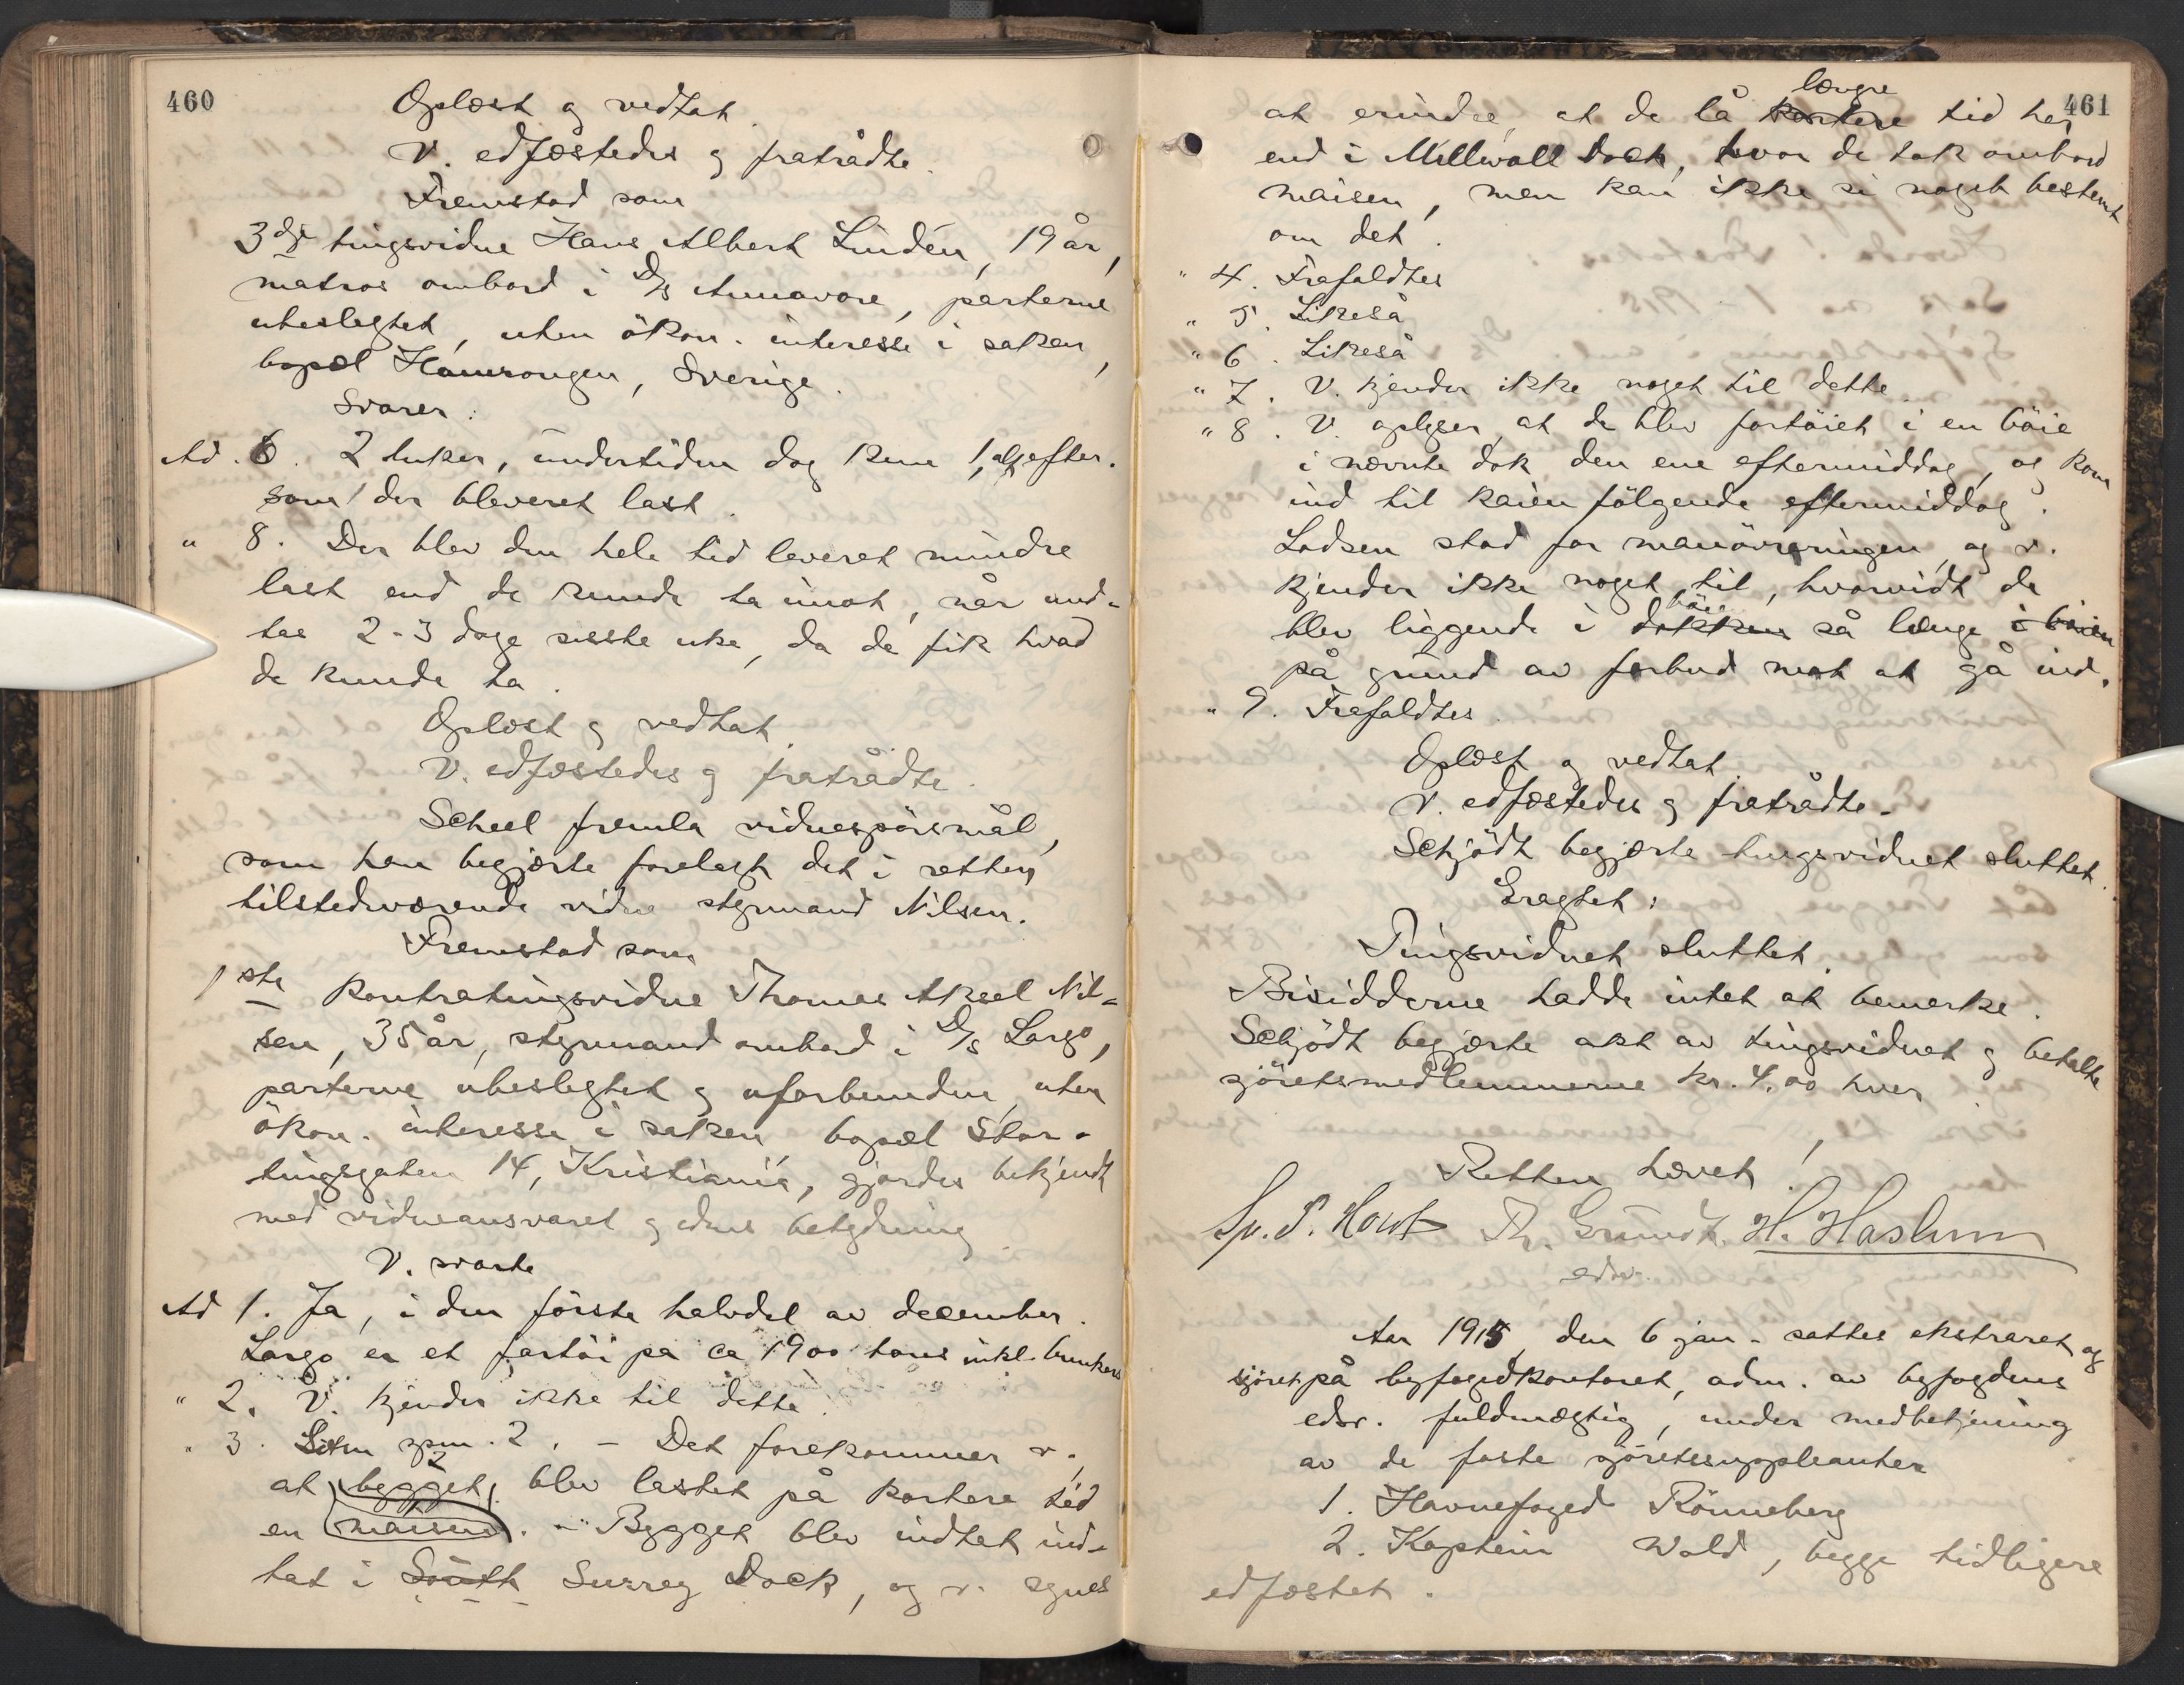 460
Oplæst og vedtat.
V. edfæstedes og fratrådte.
Fremstod som
3dje tingsvidne Hans Albert Lindén, 19 år,
matros ombord i D/s Annavore, parterne
ubeslegtet, uten ökon. interesse i saken,
bopæl Hamrongen, Sverige.
Svarer:
Ad. 6. 2 luker, undertiden dog kun 1, alt efter-
som der blev leveret last.
" 8. Der blev den hele tid leveret mindre
last end de kunde ta imot, når und-
tas 2-3 dage sisste uke, da de fik hvad
de kunde ta.
Oplæst og vedtat.
V. edfæstedes og fratrådte.
Scheel fremla vidnespörsmål,
som han begjærte forelagt det i retten
tilstedeværende vidne styrmand Nilsen.
Fremstod som
1ste kontratingsvidne Thomas Aksel Nil-
sen, 35 år, styrmand ombord i D/s Largo,
parterne ubeslegtet og uforbunden, uten
ökon. interesse i saken, bopæl Stor-
tingsgaten 14, Kristiania, gjordes bekjendt
med vidneansvaret og edens betydning.
V. svarte
Ad 1. Ja, i den förste halvdel av december.
Largo er et fartöi på ca 1900 tons inkl. bunkers
" 2. V. kjender ikke til dette.
" 3. Som spm. 2. - Det forekommer v.,
at bygget blev lastet på kortere tid
en maisen. - Bygget blev indtat ind-
tat i South Surrey Dock, og v. synes
461
længre
at erindre, at de lå kortere tid her
end i Millwall Dock, hvor de tok ombord
maisen, men kan ikke si noget bestemt
om det.
" 4. Frafaldtes
" 5. Likeså
" 6. Likeså
" 7. V. kjender ikke noget til dette.
" 8. V. oplyser, at de blev fortöiet i en böie
i nævnte dok den ene eftermiddag, og kom
ind til kaien fölgende eftermiddag.
Lodsen stod for manövreringen, og v.
kjender ikke noget til, hvorvidt de
böie
blev liggende i dokken så længe i böien
på grund av forbud mot at gå ind.
" 9. Frafaldtes.
Oplæst og vedtat.
V. edfæstedes og fratrådte.
Schjödt begjærte tingsvidnet sluttet.
Eragtet:
Tingsvidnet sluttet.
Bisidderne hadde intet at bemerke.
Schjödt begjærte akt av tingsvidnet og betalte
sjöretsmedlemmerne kr. 4.00 hver.
Retten hævet!
Th. Grundt H. Haslum
edsv.
Aar 1915 den 6 jan. sattes ekstraret og
sjöret på byfogedkontoret, adm. av byfogdens
edsv. fuldmægtig, under medbetjening
av de faste sjöretssuppleanter
1. Havnefoged Rönneberg
2. Kaptein Wold, begge tidligere
edfæstet.